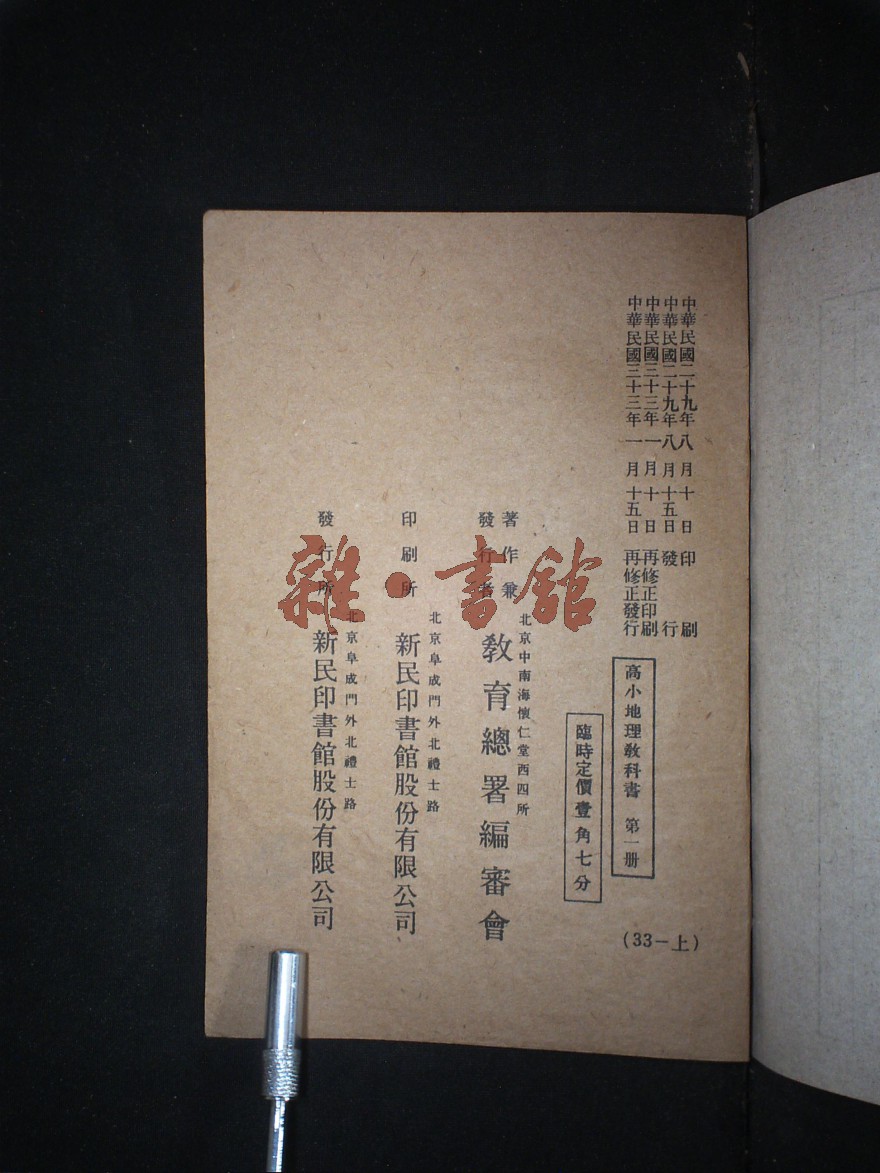 中華民國二十九年八月十日印刷
中華民國二十九年八月十五日發行
中華民國三十三年一月十日再修正印刷
中華民國三十三年一月十五日再修正發行
高小地理教科書 第一册
臨時定價壹角七分
(33-上)
著作兼
發行者
北京中南海懷仁堂西四所
教育總署編審會
印刷所
北京阜成門外北禮士路
新民印書館股份有限公司
發行所
北京阜成門外北禮士路
新民印書館股份有限公司
雜·書館